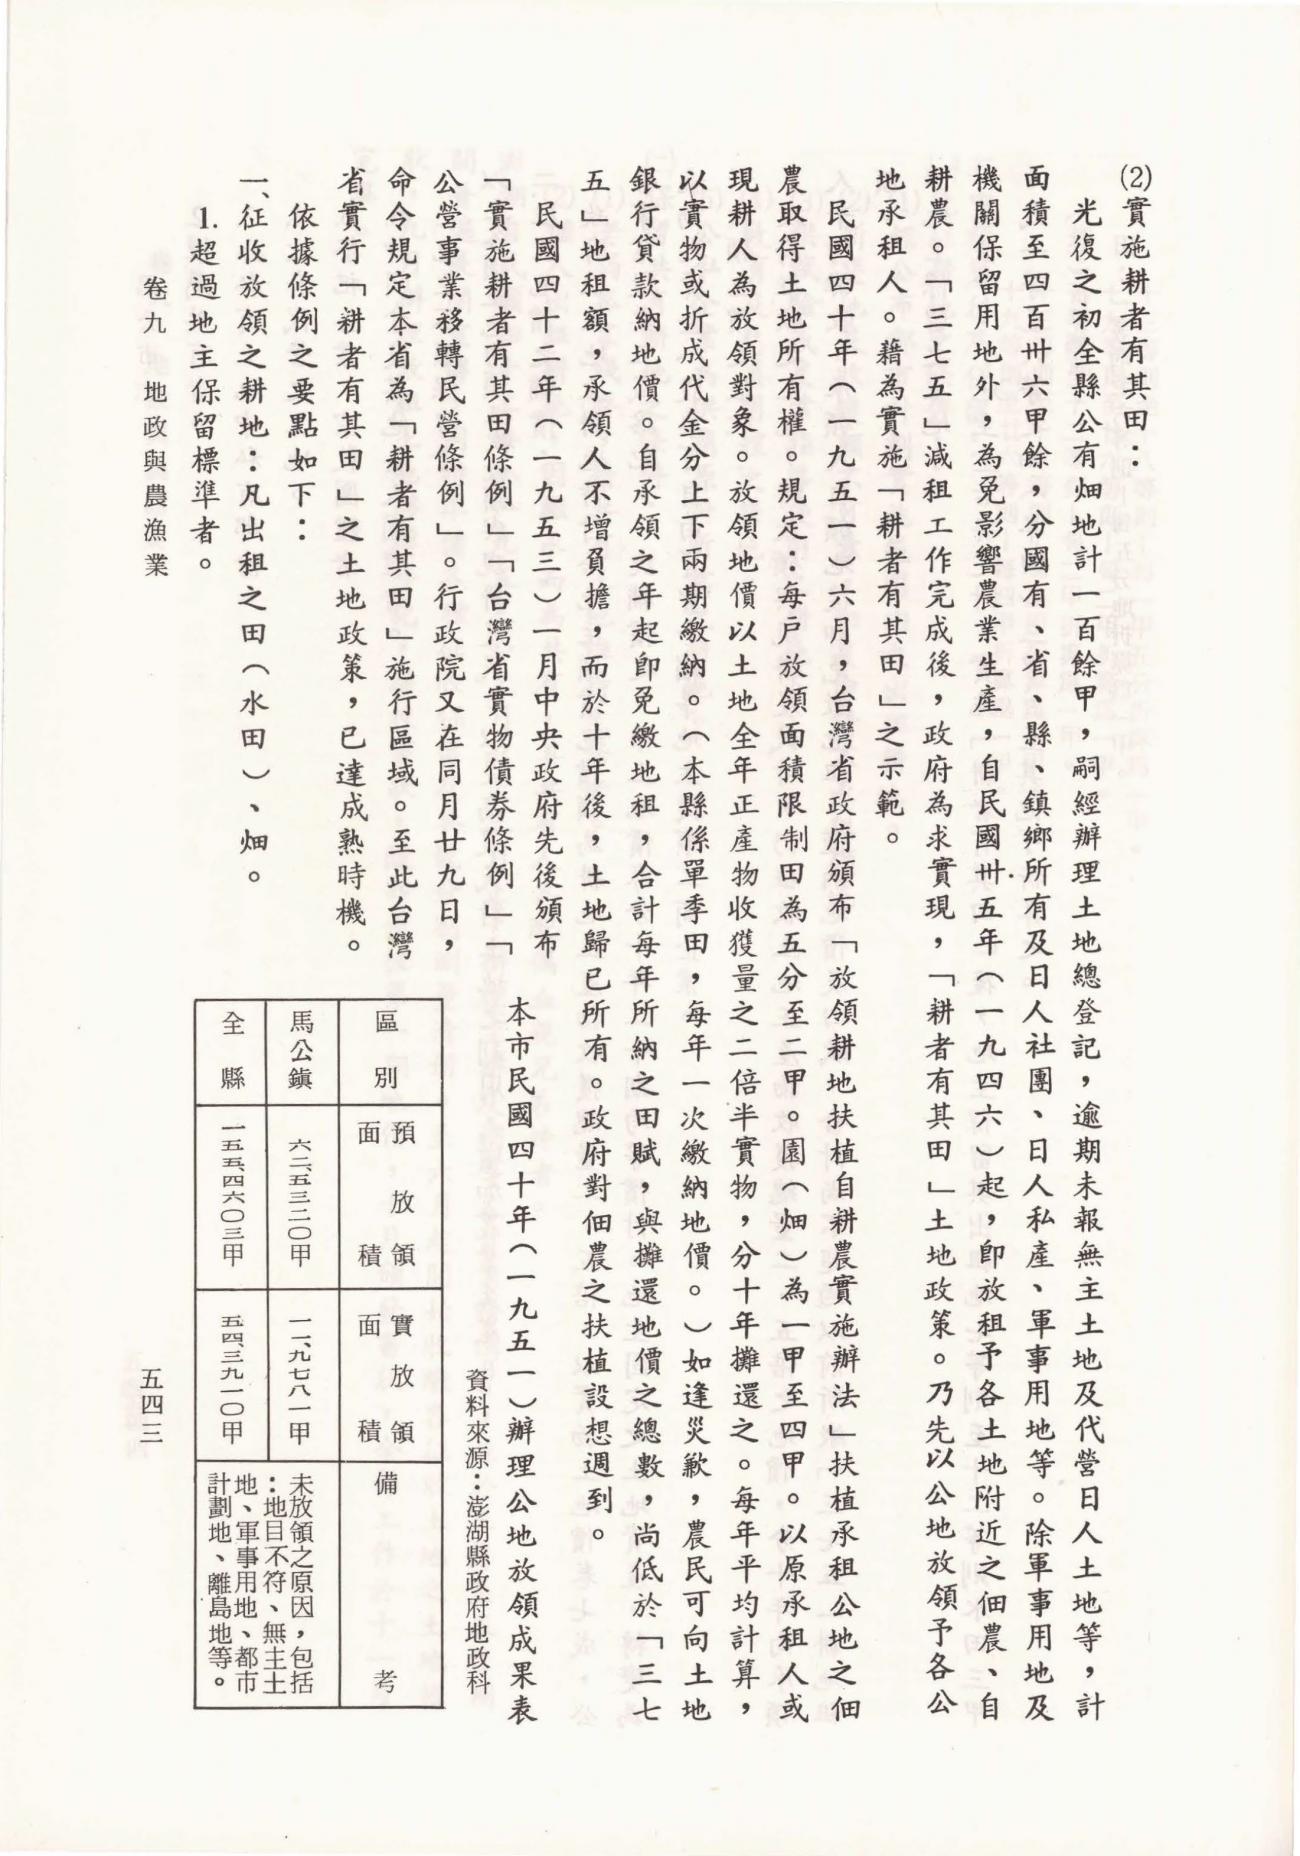 (2)實施耕者有其田：
光復之初全縣公有畑地計一百餘甲，嗣經辦理土地總登記，逾期未報無主土地及代營日人土地等，計
面積至四百卅六甲餘，分國有、省、縣、鎮鄉所有及日人社團、日人私產、軍事用地等。除軍事用地及
機關保留用地外，為免影響農業生產，自民國卅五年（一九四六）起，即放租予各土地附近之佃農、自
耕農。「三七五」減租工作完成後，政府為求實現，「耕者有其田」土地政策。乃先以公地放領予各公
地承租人。藉為實施「耕者有其田」之示範。
民國四十年（一九五一）六月，台灣省政府頒布「放領耕地扶植自耕農實施辦法」扶植承租公地之佃
農取得土地所有權。規定：每戶放領面積限制田為五分至二甲。園（畑）為一甲至四甲。以原承租人或
現耕人為放領對象。放領地價以土地全年正產物收獲量之二倍半實物，分十年攤還之。每年平均計算，
以實物或折成代金分上下兩期繳納。（本縣係單季田，每年一次繳納地價。）如逢災歉，農民可向土地
銀行貸款納地價。自承領之年起即免繳地租，合計每年所納之田賦，與攤還地價之總數，尚低於「三七
五」地租額，承領人不增負擔，而於十年後，土地歸已所有。政府對佃農之扶植設想週到。
民國四十二年（一九五三）一月中央政府先後頒布
「實施耕者有其田條例」「台灣省實物債券條例」「
公營事業移轉民營條例」。行政院又在同月廿九日，
命令規定本省為「耕者有其田」施行區域。至此台灣
省實行「耕者有其田」之土地政策，已達成熟時機。
依據條例之要點如下：
一、征收放領之耕地：凡出租之田（水田）、畑。
1.超過地主保留標準者。
本市民國四十年（一九五一）辦理公地放領成果表
資料來源：澎湖縣政府地政科
區別
預放領
面積
實放領
面積
備考
馬公鎮
六二、五三二〇甲
一一、九七八一甲
未放領之原因，包括
：地目不符、無主土
地、軍事用地、都市
計劃地、離島地等。
全縣
一五五、四六〇三甲
五四、三九一〇甲
卷九 地政與農漁業
五四三